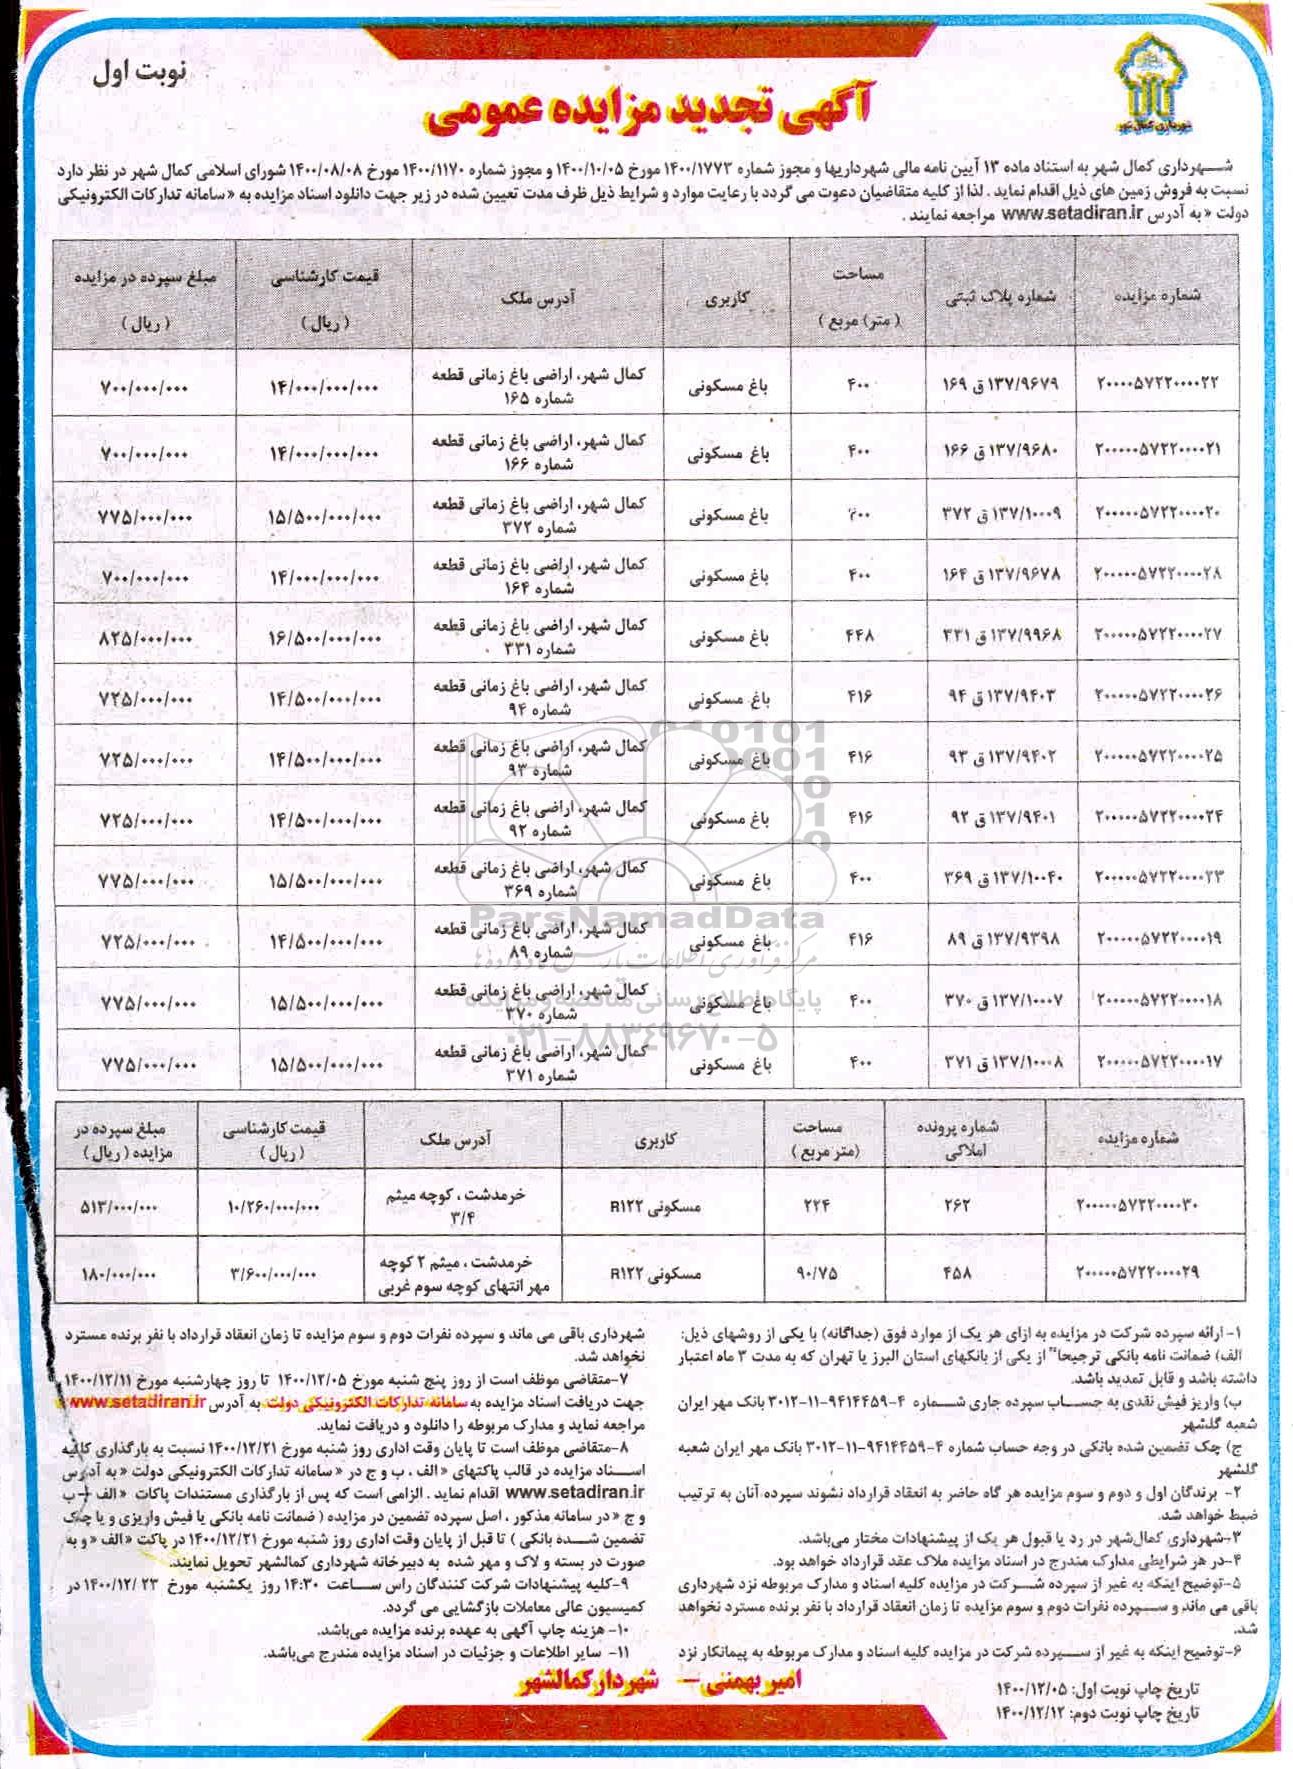 نوبت اول
شهرداری کمال شهر
آگهی تجدید مزایده عمومی
شهرداری کمال شهر به استناد ماده ۱۳ آیین نامه مالی شهرداریها و مجوز شماره ۱۴۰۰/۱۷۷۳ مورخ ۱۴۰۰/۱۰/۰۵ و مجوز شماره ۱۴۰۰/۱۱۷۰ مورخ ۱۴۰۰/۰۸/۰۸ شورای اسلامی کمال شهر در نظر دارد
نسبت به فروش زمین های ذیل اقدام نماید . لذا از کلیه متقاضیان دعوت می گردد با رعایت موارد و شرایط ذیل ظرف مدت تعیین شده در زیر جهت دانلود اسناد مزایده به « سامانه تدارکات الکترونیکی
دولت « به آدرس www.setadiran.ir مراجعه نمایند .
شماره مزایده | شماره پلاک ثبتی | مساحت (متر) مربع ) | کاربری | آدرس ملک | قیمت کارشناسی (ریال) | مبلغ سپرده در مزایده (ریال)
۲۰۰۰۰۰۵۷۲۲۰۰۰۰۲۲ | ۱۳۷/۹۶۷۹ ق ۱۶۹ | ۴۰۰ | باغ مسکونی | کمال شهر، اراضی باغ زمانی قطعه شماره ۱۶۵ | ۱۴/۰۰۰/۰۰۰/۰۰۰ | ۷۰۰/۰۰۰/۰۰۰
۲۰۰۰۰۰۵۷۲۲۰۰۰۰۲۱ | ۱۳۷/۹۶۸۰ ق ۱۶۶ | ۴۰۰ | باغ مسکونی | کمال شهر، اراضی باغ زمانی قطعه شماره ۱۶۶ | ۱۴/۰۰۰/۰۰۰/۰۰۰ | ۷۰۰/۰۰۰/۰۰۰
۲۰۰۰۰۰۵۷۲۲۰۰۰۰۲۰ | ۱۳۷/۱۰۰۰۹ ق ۳۷۲ | ۴۰۰ | باغ مسکونی | کمال شهر، اراضی باغ زمانی قطعه شماره ۳۷۲ | ۱۵/۵۰۰/۰۰۰/۰۰۰ | ۷۷۵/۰۰۰/۰۰۰
۲۰۰۰۰۰۵۷۲۲۰۰۰۰۲۸ | ۱۳۷/۹۶۷۸ ق ۱۶۴ | ۴۰۰ | باغ مسکونی | کمال شهر، اراضی باغ زمانی قطعه شماره ۱۶۴ | ۱۴/۰۰۰/۰۰۰/۰۰۰ | ۷۰۰/۰۰۰/۰۰۰
۲۰۰۰۰۰۵۷۲۲۰۰۰۰۲۷ | ۱۳۷/۹۹۶۸ ق ۳۳۱ | ۴۴۸ | باغ مسکونی | کمال شهر، اراضی باغ زمانی قطعه شماره ۳۳۱ | ۱۶/۵۰۰/۰۰۰/۰۰۰ | ۸۲۵/۰۰۰/۰۰۰
۲۰۰۰۰۰۵۷۲۲۰۰۰۰۲۶ | ۱۳۷/۹۴۰۳ ق ۹۴ | ۴۱۶ | باغ مسکونی | کمال شهر، اراضی باغ زمانی قطعه شماره ۹۴ | ۱۴/۵۰۰/۰۰۰/۰۰۰ | ۷۲۵/۰۰۰/۰۰۰
۲۰۰۰۰۰۵۷۲۲۰۰۰۰۲۵ | ۱۳۷/۹۴۰۲ ق ۹۳ | ۴۱۶ | باغ مسکونی | کمال شهر، اراضی باغ زمانی قطعه شماره ۹۳ | ۱۴/۵۰۰/۰۰۰/۰۰۰ | ۷۲۵/۰۰۰/۰۰۰
۲۰۰۰۰۰۵۷۲۲۰۰۰۰۲۴ | ۱۳۷/۹۴۰۱ ق ۹۲ | ۴۱۶ | باغ مسکونی | کمال شهر، اراضی باغ زمانی قطعه شماره ۹۲ | ۱۴/۵۰۰/۰۰۰/۰۰۰ | ۷۲۵/۰۰۰/۰۰۰
۲۰۰۰۰۰۵۷۲۲۰۰۰۰۲۳ | ۱۳۷/۱۰۰۴۰ ق ۳۶۹ | ۴۰۰ | باغ مسکونی | کمال شهر، اراضی باغ زمانی قطعه شماره ۳۶۹ | ۱۵/۵۰۰/۰۰۰/۰۰۰ | ۷۷۵/۰۰۰/۰۰۰
۲۰۰۰۰۰۵۷۲۲۰۰۰۰۱۹ | ۱۳۷/۹۳۹۸ ق ۸۹ | ۴۱۶ | باغ مسکونی | کمال شهر، اراضی باغ زمانی قطعه شماره ۸۹ | ۱۴/۵۰۰/۰۰۰/۰۰۰ | ۷۲۵/۰۰۰/۰۰۰
۲۰۰۰۰۰۵۷۲۲۰۰۰۰۱۸ | ۱۳۷/۱۰۰۰۷ ق ۳۷۰ | ۴۰۰ | باغ مسکونی | کمال شهر، اراضی باغ زمانی قطعه شماره ۳۷۰ | ۱۵/۵۰۰/۰۰۰/۰۰۰ | ۷۷۵/۰۰۰/۰۰۰
۲۰۰۰۰۰۵۷۲۲۰۰۰۰۱۷ | ۱۳۷/۱۰۰۰۸ ق ۳۷۱ | ۴۰۰ | باغ مسکونی | کمال شهر، اراضی باغ زمانی قطعه شماره ۳۷۱ | ۱۵/۵۰۰/۰۰۰/۰۰۰ | ۷۷۵/۰۰۰/۰۰۰
ParsNamadData
پایگاه اطلاع رسانی مناقصه و مزایده
۰۲۱-۸۸۳۴۹۶۷۰-۵
شماره مزایده | شماره پرونده املاکی | مساحت (متر مربع) | کاربری | آدرس ملک | قیمت کارشناسی (ریال) | مبلغ سپرده در مزایده (ریال)
۲۰۰۰۰۰۵۷۲۲۰۰۰۰۳۰ | ۲۶۲ | ۲۲۴ | مسکونی R۱۲۲ | خرمدشت ، کوچه میثم ۳/۴ | ۱۰/۲۶۰/۰۰۰/۰۰۰ | ۵۱۳/۰۰۰/۰۰۰
۲۰۰۰۰۰۵۷۲۲۰۰۰۰۲۹ | ۴۵۸ | ۹۰/۷۵ | مسکونی R۱۲۲ | خرمدشت ، میثم ۲ کوچه مهر انتهای کوچه سوم غربی | ۳/۶۰۰/۰۰۰/۰۰۰ | ۱۸۰/۰۰۰/۰۰۰
۱- ارائه سپرده شرکت در مزایده به ازای هر یک از موارد فوق (جداگانه) با یکی از روشهای ذیل:
الف) ضمانت نامه بانکی ترجیحا" از یکی از بانکهای استان البرز یا تهران که به مدت ۳ ماه اعتبار
داشته باشد و قابل تمدید باشد.
ب) واریز فیش نقدی به حساب سپرده جاری شماره ۴-۹۴۱۴۴۵۹-۱۱-۳۰۱۲ بانک مهر ایران
شعبه گلشهر
ج) چک تضمین شده بانکی در وجه حساب شماره ۴-۹۴۱۴۴۵۹-۱۱-۳۰۱۲ بانک مهر ایران شعبه
گلشهر
۲- برندگان اول و دوم و سوم مزایده هر گاه حاضر به انعقاد قرارداد نشوند سپرده آنان به ترتیب
ضبط خواهد شد.
۳-شهرداری کمال‌شهر در رد یا قبول هر یک از پیشنهادات مختار می‌باشد.
۴-در هر شرایطی مدارک مندرج در اسناد مزایده ملاک عقد قرارداد خواهد بود.
۵-توضیح اینکه به غیر از سپرده شرکت در مزایده کلیه اسناد و مدارک مربوطه نزد شهرداری
باقی می ماند و سپرده نفرات دوم و سوم مزایده تا زمان انعقاد قرارداد با نفر برنده مسترد نخواهد
شد.
۶-توضیح اینکه به غیر از سپرده شرکت در مزایده کلیه اسناد و مدارک مربوطه به پیمانکار نزد
شهرداری باقی می ماند و سپرده نفرات دوم و سوم مزایده تا زمان انعقاد قرارداد با نفر برنده مسترد
نخواهد شد.
۷-متقاضی موظف است از روز پنج شنبه مورخ ۱۴۰۰/۱۲/۰۵ تا روز چهارشنبه مورخ ۱۴۰۰/۱۲/۱۱
جهت دریافت اسناد مزایده به سامانه تدارکات الکترونیکی دولت به آدرس www.setadiran.ir
مراجعه نماید و مدارک مربوطه را دانلود و دریافت نماید.
۸-متقاضی موظف است تا پایان وقت اداری روز شنبه مورخ ۱۴۰۰/۱۲/۲۱ نسبت به بارگذاری کلیه
اسناد مزایده در قالب پاکتهای « الف ، ب و ج در « سامانه تدارکات الکترونیکی دولت « به آدرس
www.setadiran.ir اقدام نماید . الزامی است که پس از بارگذاری مستندات پاکات « الف + ب
و ج « در سامانه مذکور ، اصل سپرده تضمین در مزایده ( ضمانت نامه بانکی یا فیش واریزی و یا چک
تضمین شده بانکی ) تا قبل از پایان وقت اداری روز شنبه مورخ ۱۴۰۰/۱۲/۲۱ در پاکت « الف « و به
صورت در بسته و لاک و مهر شده به دبیرخانه شهرداری کمالشهر تحویل نمایند.
۹-کلیه پیشنهادات شرکت کنندگان راس ساعت ۱۴:۳۰ روز یکشنبه مورخ ۱۴۰۰/۱۲/۲۳ در
کمیسیون عالی معاملات بازگشایی می گردد.
۱۰- هزینه چاپ آگهی به عهده برنده مزایده می‌باشد.
۱۱- سایر اطلاعات و جزئیات در اسناد مزایده مندرج می‌باشد.
تاریخ چاپ نوبت اول: ۱۴۰۰/۱۲/۰۵
تاریخ چاپ نوبت دوم: ۱۴۰۰/۱۲/۱۲
امیر بهمنی – شهردار کمالشهر